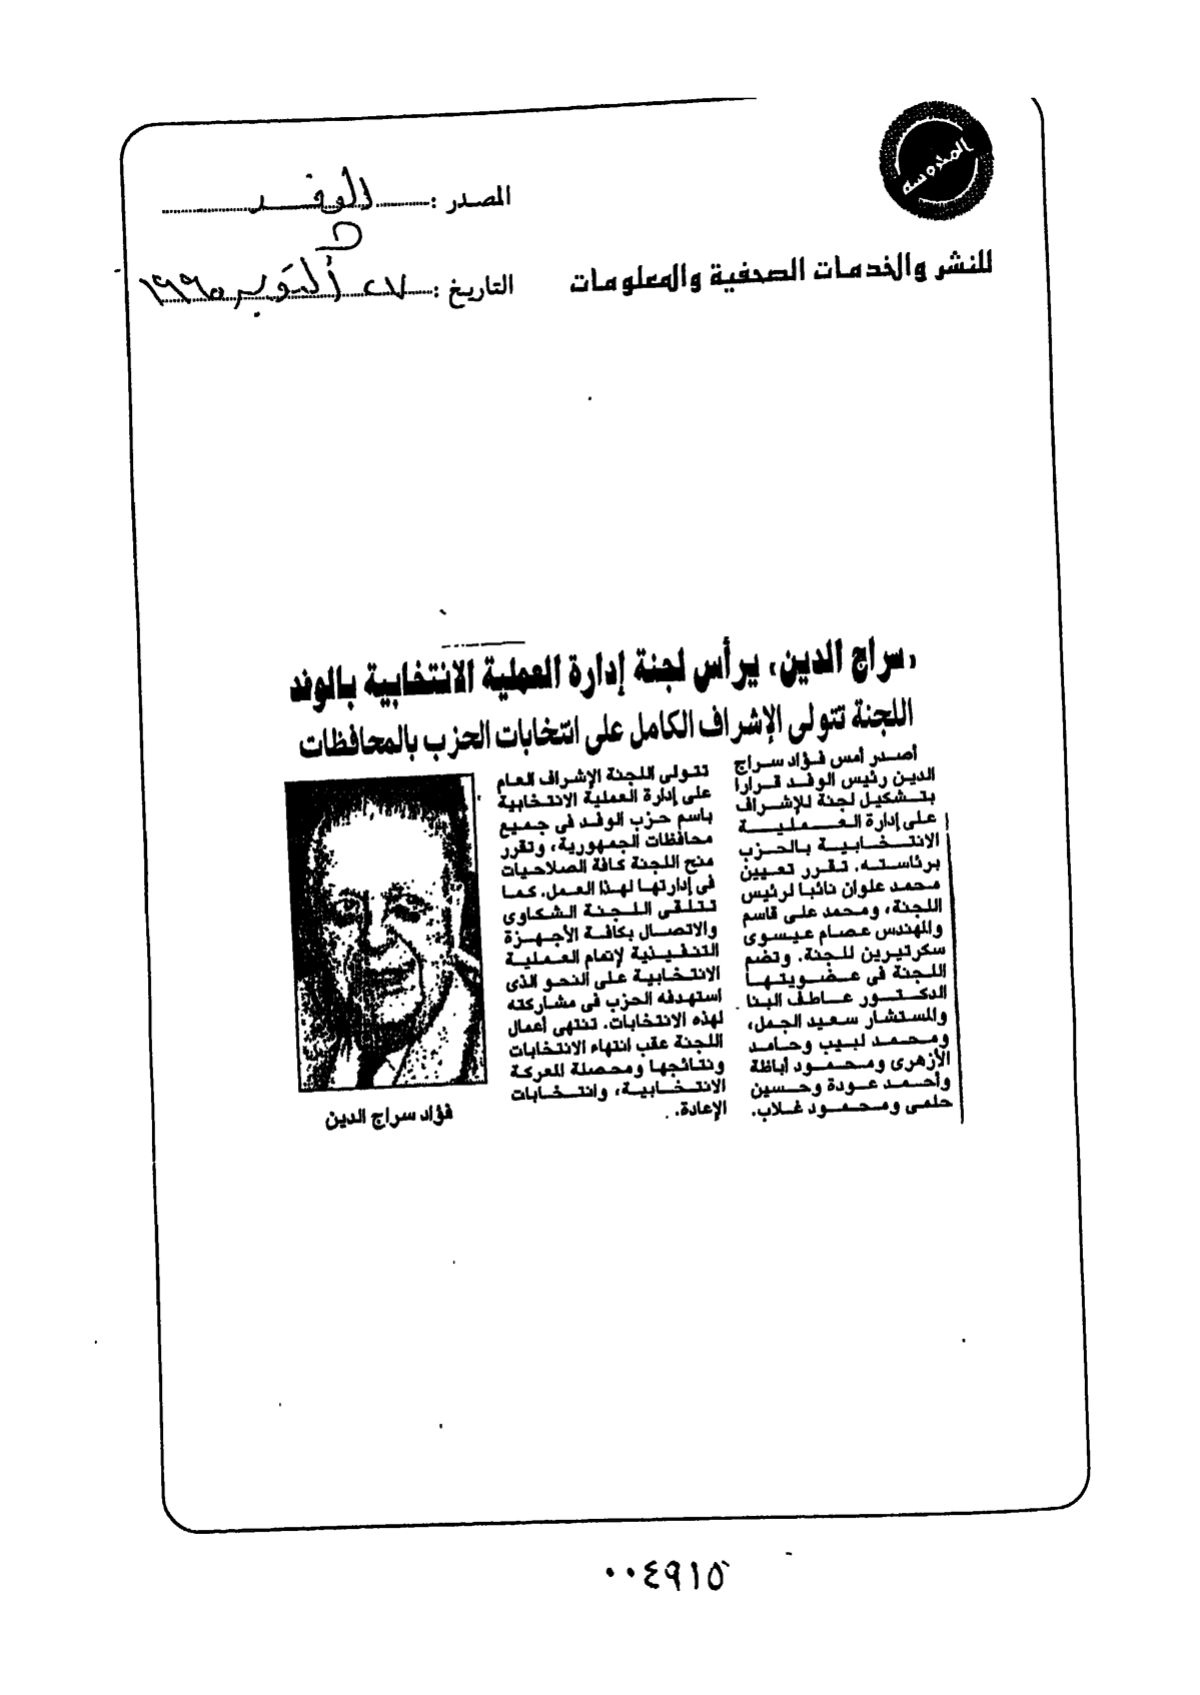 المحروسة
المصدر : الوفد
للنشر والخدمات الصحفية والمعلومات
التاريخ : ٢٧ أكتوبر ١٩٩٥
«سراج الدين» يرأس لجنة إدارة العملية الانتخابية بالوفد
اللجنة تتولى الإشراف الكامل على انتخابات الحزب بالمحافظات
أصدر أمس فؤاد سراج
الدين رئيس الوفد قرارا
بتشكيل لجنة للإشراف
على إدارة العملية
الانتخابية بالحزب
برئاسته. تقرر تعيين
محمد علوان نائبا لرئيس
اللجنة، ومحمد على قاسم
والمهندس عصام عيسوى
سكرتيرين للجنة. وتضم
اللجنة فى عضويتها
الدكتور عاطف البنا
والمستشار سعيد الجمل،
ومحمد لبيب وحامد
الأزهرى ومحمود أباظة
وأحمد عودة وحسين
حلمى ومحمود غلاب.
تتولى اللجنة الإشراف العام
على إدارة العملية الانتخابية
باسم حزب الوفد فى جميع
محافظات الجمهورية، وتقرر
منح اللجنة كافة الصلاحيات
فى إدارتها لهذا العمل. كما
تتلقى اللجنة الشكاوى
والاتصال بكافة الأجهزة
التنفيذية لإتمام العملية
الانتخابية على النحو الذى
استهدفه الحزب فى مشاركته
لهذه الانتخابات. تنتهى أعمال
اللجنة عقب انتهاء الانتخابات
ونتائجها ومحصلة المعركة
الانتخابية، وانتخابات
الإعادة.
فؤاد سراج الدين
٠٠٤٩١٥